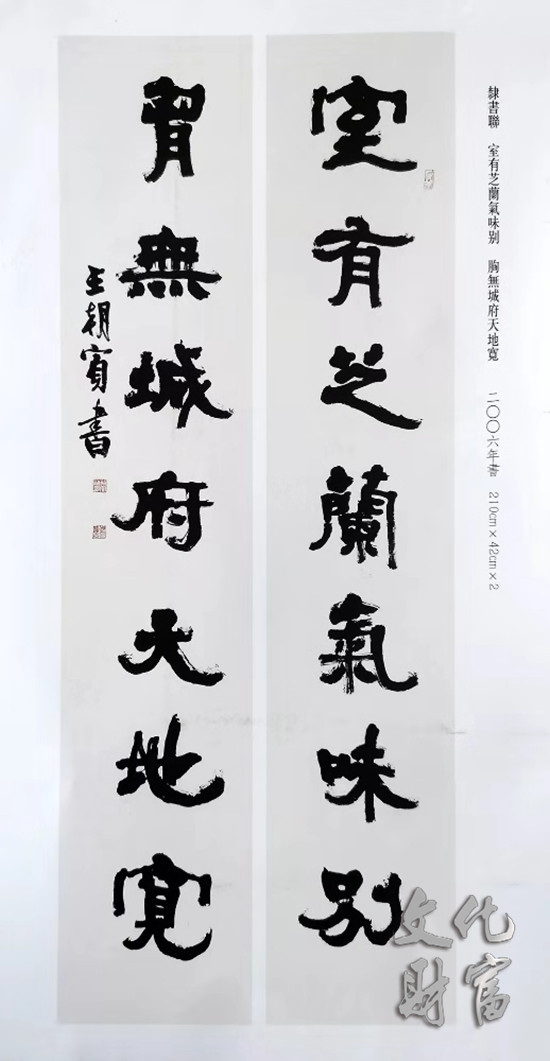 隸書聯　室有芝蘭氣味别　胸無城府天地寬　二〇〇六年書　210cm×42cm×2
室有芝蘭氣味别
胷無城府天地寬
王朝賓書
文化
財富